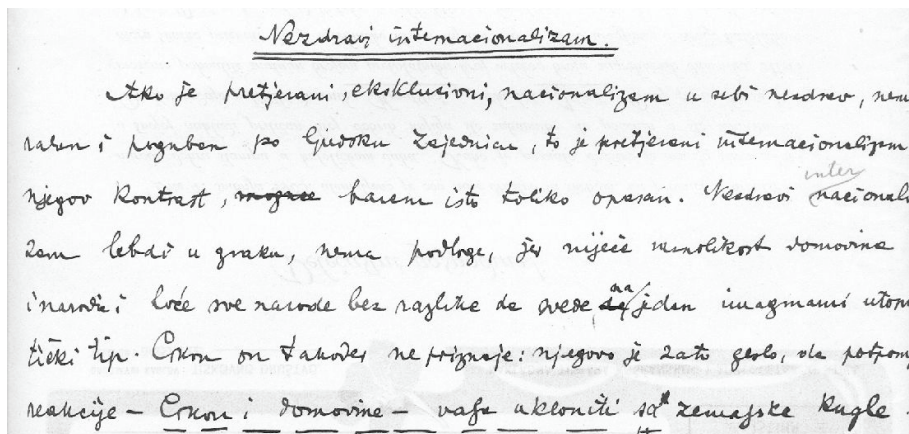 Nezdravi internacionalizam.
Ako je pretjerani, eksklusivni, nacionalizam u sebi nezdrav, nemo
ralan i poguban po ljudsku zajednicu, to je pretjerani internacionalizam
njegov kontrast, moguće barem isto toliko opasan. Nezdravi inter nacionali
zam lebdi u zraku, nema podloge, jer niječe raznolikost domovina
i naroda i hoće sve narode bez razlike da svede na jedan imaginarni utopi
tički tip. Crkvu on također ne priznaje: njegovo je zato geslo, da potpom
reakcije – Crkvu i domovine – valja ukloniti sa zemaljske kugle.